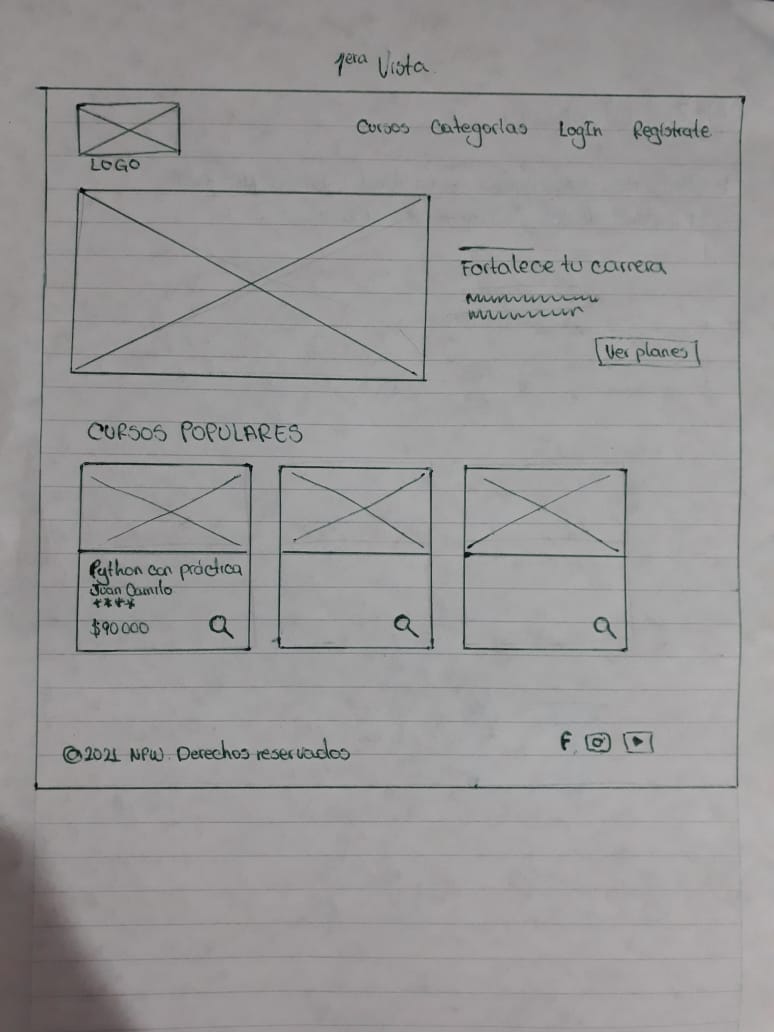 1era Vista
LOGO
Cursos Categorías LogIn Regístrate
Fortalece tu carrera
Ver planes
CURSOS POPULARES
Python con práctica
Juan Camilo
****
$90000
©2021 NPW. Derechos reservados